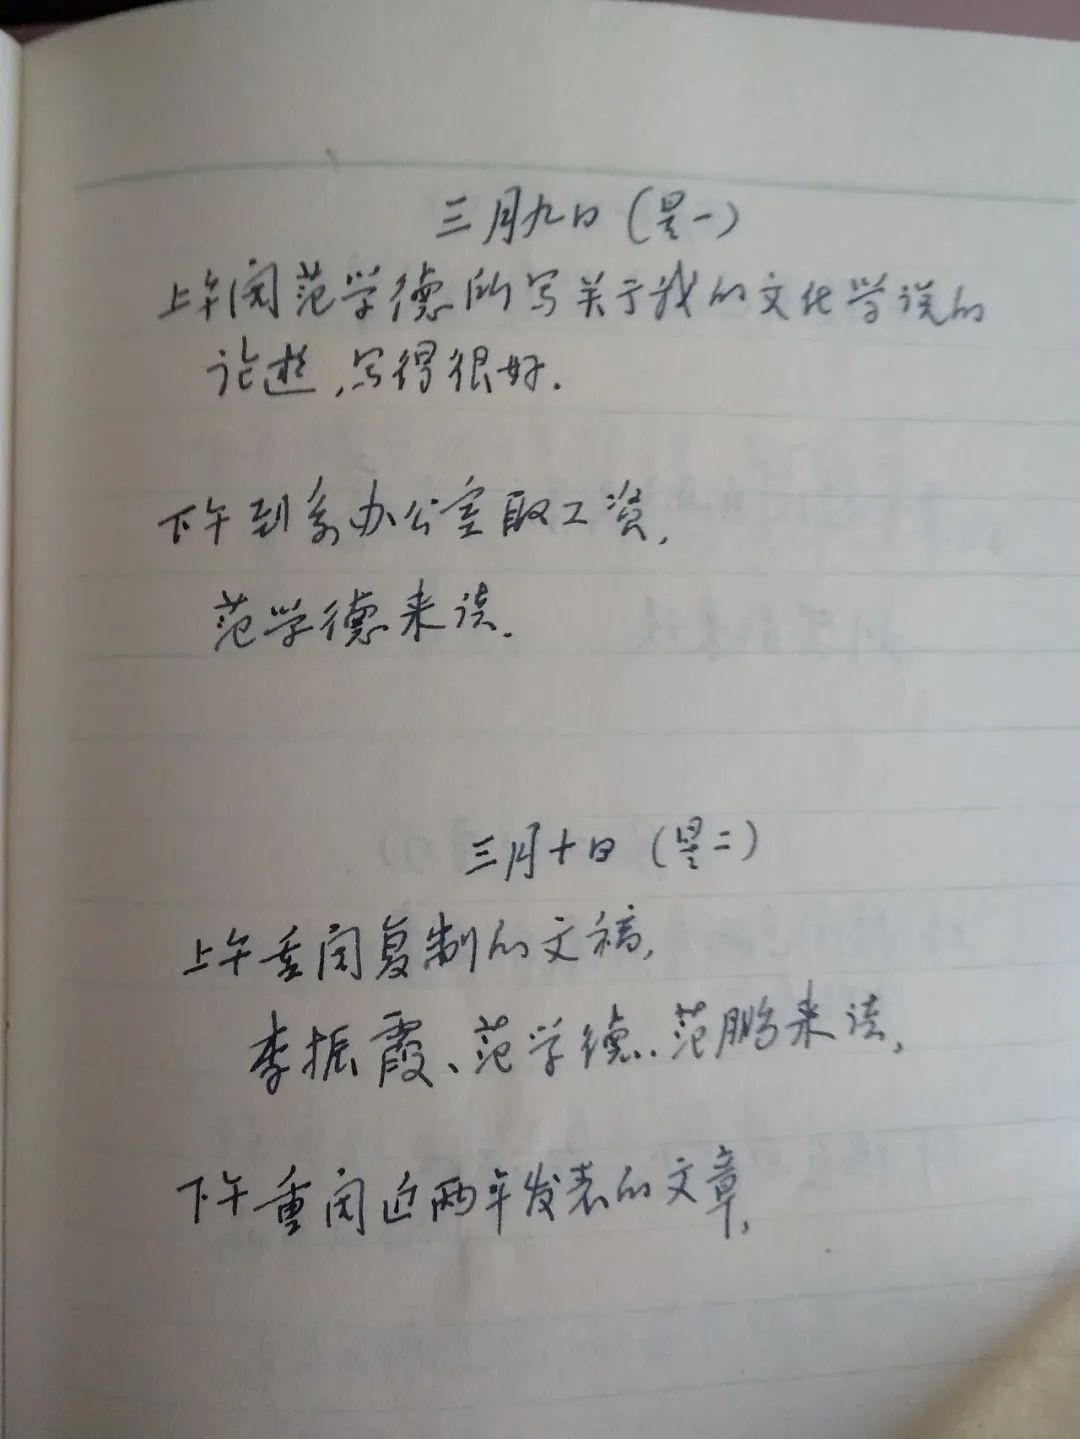 三月九日(星一)
上午阅范学德所写关于我的文化学说的
论述,写得很好.
下午到系办公室取工资,
范学德来谈.
三月十日(星二)
上午重阅复制的文稿,
李振霞、范学德、范鹏来谈,
下午重阅近两年发表的文章,